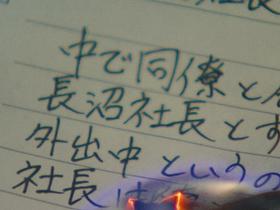 中で同僚と
長沼社長とす
外出中というの
社長は